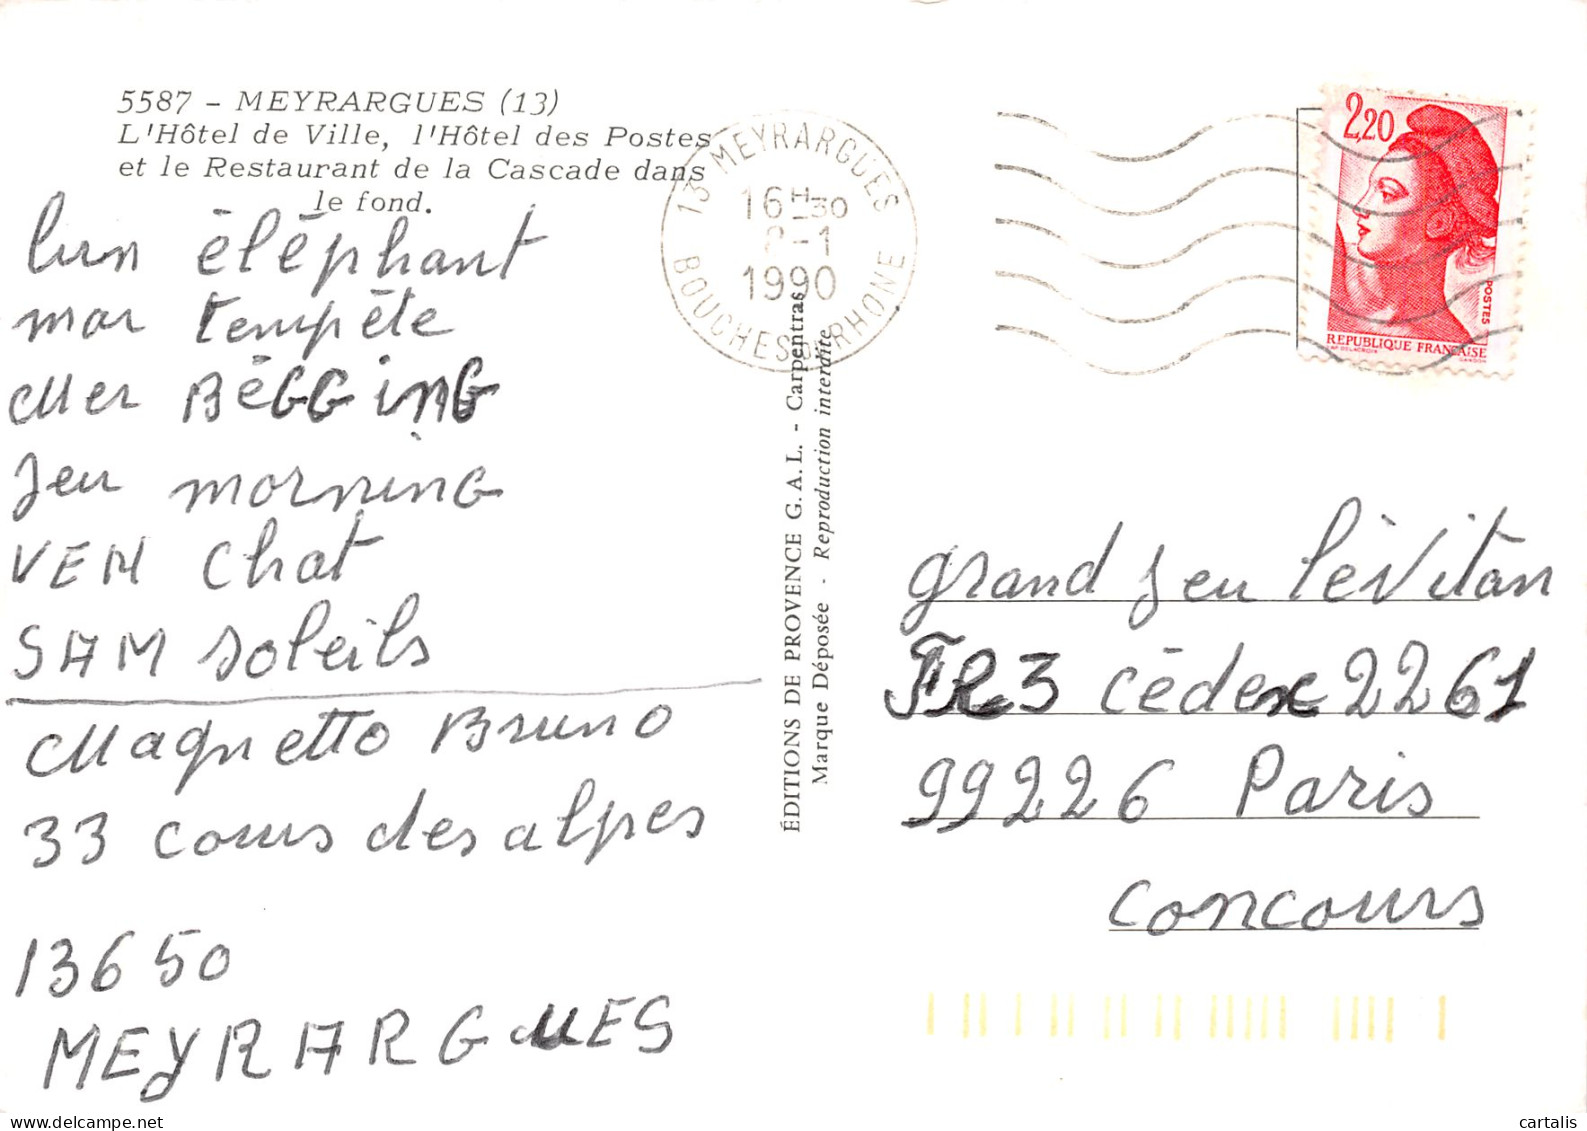 5587 - MEYRARGUES (13)
L'Hôtel de Ville, l'Hôtel des Postes
et le Restaurant de la Cascade dans
le fond.
lun éléphant
mar tempête
Mer BéGGinG
Jeu morninG
VEN chat
SAM soleils
Magnetto Bruno
33 cours des alpes
13650
MEYRARGUES
13 MEYRARGUES
16H-30
-1
1990
BOUCHES D RHONE
ÉDITIONS DE PROVENCE G.A.L. - Carpentras
Marque Déposée - Reproduction interdite
2,20
POSTES
REPUBLIQUE FRANÇAISE
D'AP DELACROIX GANDON
grand Jeu lévitan
FR3 cédex 2261
99226 Paris
concours
cartalis